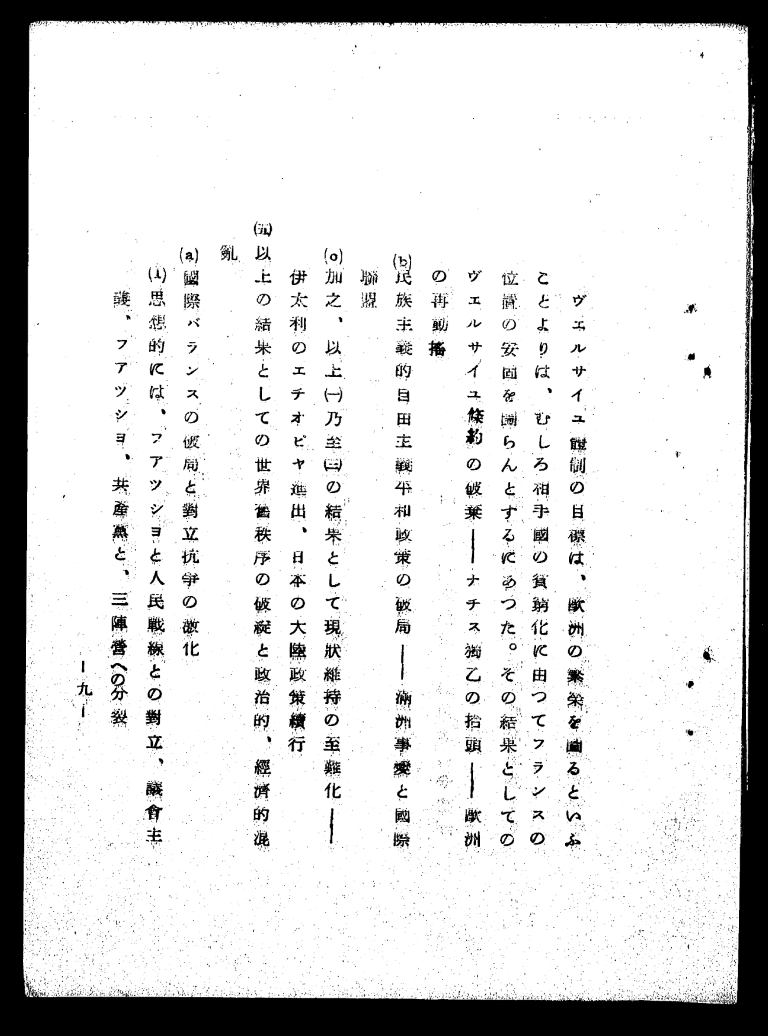 ヴエルサイユ體制の目標は、歐洲の繁榮を圖るといふ
ことよりは、むしろ相手國の貧窮化に由つてフランスの
位置の安固を圖らんとするにあつた。その結果としての
ヴエルサイユ條約の破棄――ナチス獨乙の抬頭――歐洲
の再動搖
(b)民族主義的自由主義平和政策の破局――滿洲事變と國際
聯盟
(c)加之、以上㈠乃至㈢の結果として現狀維持の至難化――
伊太利のエチオピヤ進出、日本の大陸政策續行
㈤以上の結果としての世界舊秩序の破綻と政治的、經濟的混
亂
(a)國際バランスの破局と對立抗爭の激化
(1)思想的には、フアツシヨと人民戰線との對立、議會主
義、フアツシヨ、共產黨と、三陣營への分裂
―九―